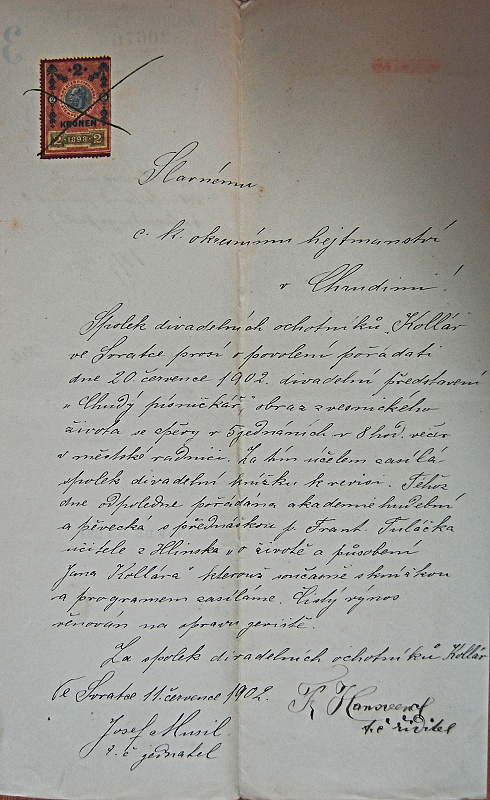 2
KRONEN
2 1898 2
Slavnému
c. k. okresnímu hejtmanství
v Chrudimi!
Spolek divadelních ochotníků „Kollár
ve Svratce prosí o povolení pořádati
dne 20. července 1902. divadelní představení
„Chudý písničkář" obraz z vesnického
života se zpěvy v 5 jednáních v 8 hod. večer
v městské radnici. Za tím účelem zasílá
spolek divadelní knížku k revisi. Téhož
dne odpoledne pořádána akademie hudební
a pěvecká s přednáškou p. Frant. Tuláčka
učitele z Hlinska „o životě a působení
Jana Kollára" kterouž současně s knížkou
a programem zasíláme. Čistý výnos
věnován na spravu jeviště.
Za spolek divadelních ochotníků Kollár
Ve Svratce 11. července 1902.
Josef Musil
t. č. jednatel
Fr.
t. č. ředitel